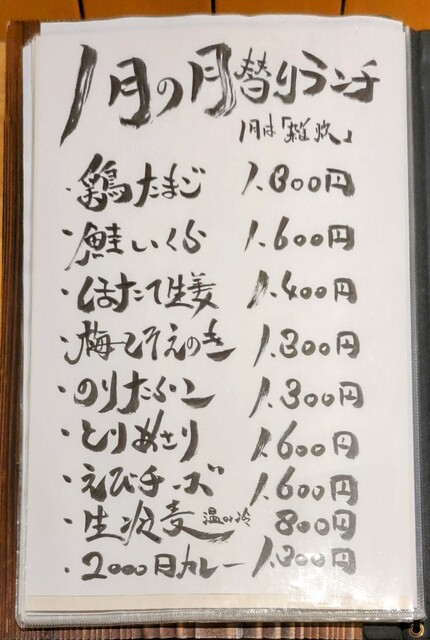 1月の月替りランチ
1月は「雑炊」
・鶏たまご 1.300円
・鮭いくら 1.600円
・ほたて生姜 1.400円
・梅しそえのき 1.300円
・のりたらこ 1.300円
・とりあさり 1.600円
・えびチーズ 1.600円
・生冷麦 温or冷 800円
・2000日カレー 1.300円